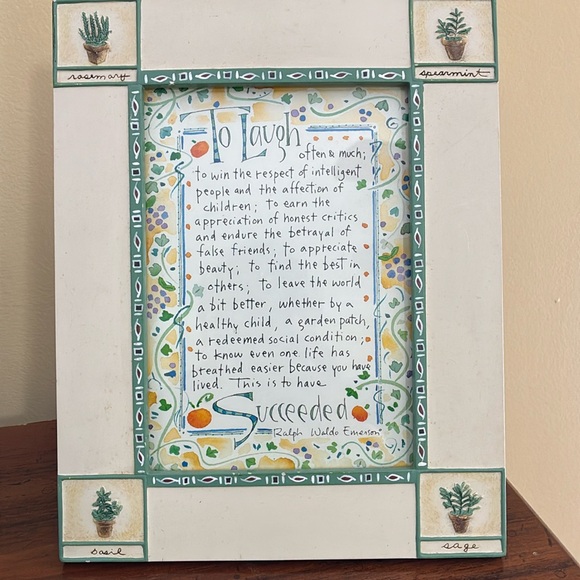 rosemary
spearmint
To Laugh
often & much;
to win the respect of intelligent
people and the affection of
children; to earn the
appreciation of honest critics
and endure the betrayal of
false friends; to appreciate
beauty; to find the best in
others; to leave the world
a bit better, whether by a
healthy child, a garden patch,
a redeemed social condition;
to know even one life has
breathed easier because you have
lived. This is to have
Succeeded
Ralph Waldo Emerson
basil
sage